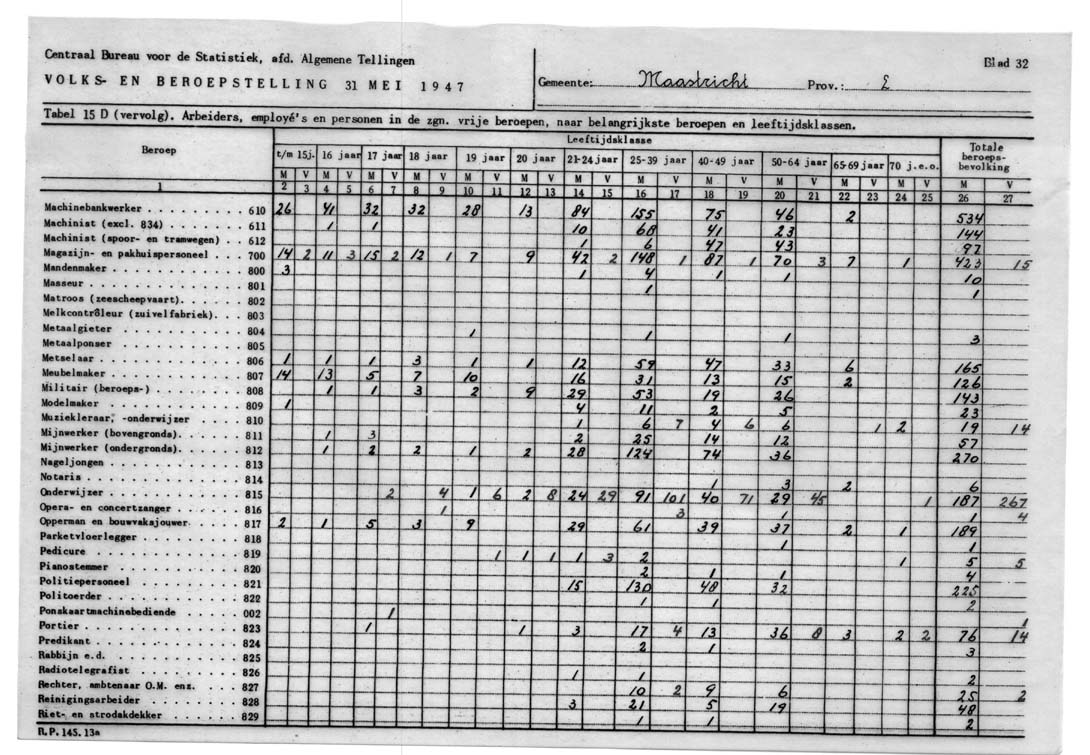 Centraal Bureau voor de Statistiek, afd. Algemene Tellingen
Blad 32
VOLKS- EN BEROEPSTELLING 31 MEI 1947
Gemeente: Maastricht Prov.: L
Tabel 15 D (vervolg). Arbeiders, employé's en personen in de zgn. vrije beroepen, naar belangrijkste beroepen en leeftijdsklassen.
Beroep Leeftijdsklasse Totale beroepsbevolking
t/m 15j. 16 jaar 17 jaar 18 jaar 19 jaar 20 jaar 21-24 jaar 25-39 jaar 40-49 jaar 50-64 jaar 65-69 jaar 70 j.e.o.
M V M V M V M V M V M V M V M V M V M V M V M V M V
1 2 3 4 5 6 7 8 9 10 11 12 13 14 15 16 17 18 19 20 21 22 23 24 25 26 27
Machinebankwerker 610 26 41 32 32 28 13 84 155 75 46 2 534
Machinist (excl. 834) 611 1 1 10 68 41 23 144
Machinist (spoor- en tramwegen) 612 1 6 47 43 97
Magazijn- en pakhuispersoneel 700 14 2 11 3 15 2 12 1 7 9 42 2 148 1 87 1 70 3 7 1 423 15
Mandenmaker 800 3 1 4 1 1 10
Masseur 801 1 1
Matroos (zeescheepvaart) 802
Melkcontrôleur (zuivelfabriek) 803
Metaalgieter 804 1 1 1 3
Metaalponser 805
Metselaar 806 1 1 1 3 1 1 12 59 47 33 6 165
Meubelmaker 807 14 13 5 7 10 16 31 13 15 2 126
Militair (beroeps-) 808 1 1 3 2 9 29 53 19 26 143
Modelmaker 809 1 4 11 2 5 23
Muziekleraar, -onderwijzer 810 1 6 7 4 6 6 1 2 19 14
Mijnwerker (bovengronds) 811 1 3 2 25 14 12 57
Mijnwerker (ondergronds) 812 1 2 2 1 2 28 124 74 36 270
Nageljongen 813
Notaris 814 1 3 2 6
Onderwijzer 815 2 4 1 6 2 8 24 29 91 101 40 71 29 45 1 187 267
Opera- en concertzanger 816 1 3 1 1 4
Opperman en bouwvakajouwer 817 2 1 5 3 9 29 61 39 37 2 1 189
Parketvloerlegger 818 1 1
Pedicure 819 1 1 1 1 3 2 1 5 5
Pianostemmer 820 2 1 1 4
Politiepersoneel 821 15 130 48 32 225
Politoerder 822 1 1 2
Ponskaartmachinebediende 002 1 1
Portier 823 1 1 3 17 4 13 36 8 3 2 2 76 14
Predikant 824 2 1 3
Rabbijn e.d. 825
Radiotelegrafist 826 1 1 2
Rechter, ambtenaar O.M. enz. 827 10 2 9 6 25 2
Reinigingsarbeider 828 3 21 5 19 48
Riet- en strodakdekker 829 1 1 2
R.P. 145. 13a